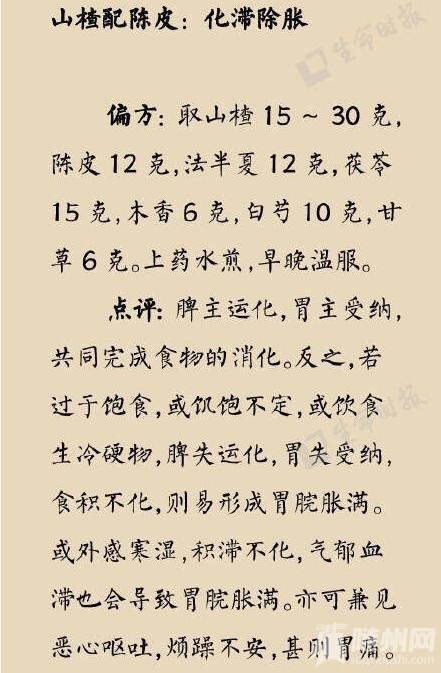 山楂配陈皮：化滞除胀
生命时报
偏方：取山楂15～30克，
陈皮12克，法半夏12克，茯苓
15克，木香6克，白芍10克，甘
草6克。上药水煎，早晚温服。
点评：脾主运化，胃主受纳，
共同完成食物的消化。反之，若
过于饱食，或饥饱不定，或饮食
生冷硬物，脾失运化，胃失受纳，
生命时报
食积不化，则易形成胃脘胀满。
或外感寒湿，积滞不化，气郁血
滞也会导致胃脘胀满。亦可兼见
恶心呕吐，烦躁不安，甚则胃痛。
滕州网